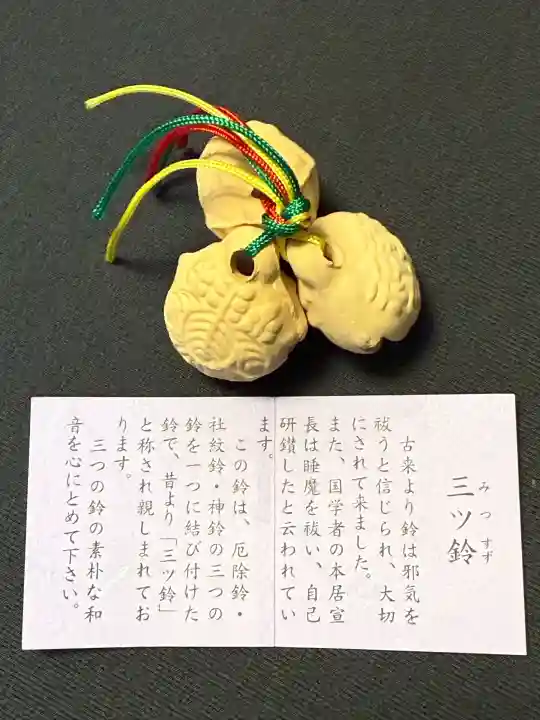 三ツ鈴
みつすず
古来より鈴は邪気を
祓うと信じられ、大切
にされて来ました。
また、国学者の本居宣
長は睡魔を祓い、自己
研鑽したと云われてい
ます。
この鈴は、厄除鈴・
社紋鈴・神鈴の三つの
鈴を一つに結び付けた
鈴で、昔より「三ツ鈴」
と称され親しまれてお
ります。
三つの鈴の素朴な和
音を心にとめて下さい。